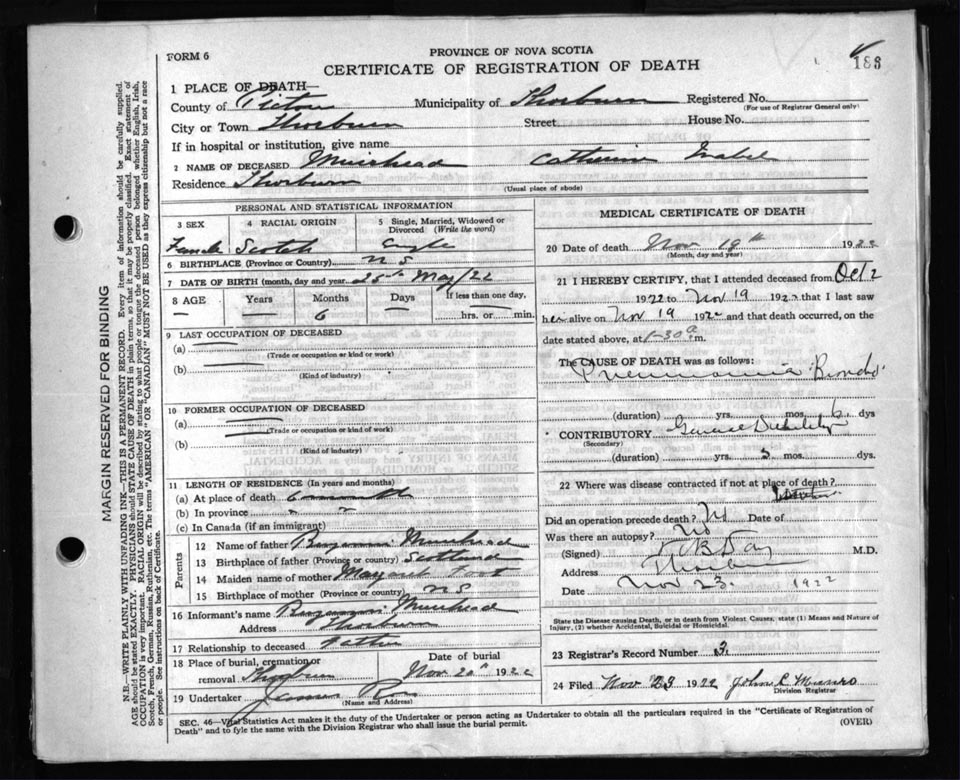 FORM 6
PROVINCE OF NOVA SCOTIA
CERTIFICATE OF REGISTRATION OF DEATH
188
1 PLACE OF DEATH
County of Pictou Municipality of Thorburn Registered No.
(For use of Registrar General only)
City or Town Thorburn Street House No.
If in hospital or institution, give name
2 NAME OF DECEASED Muirhead Catherine Isabel
Residence Thorburn
(Usual place of abode)
PERSONAL AND STATISTICAL INFORMATION
3 SEX 4 RACIAL ORIGIN 5 Single, Married, Widowed or Divorced (Write the word)
Female Scotch Single
6 BIRTHPLACE (Province or Country) N S
7 DATE OF BIRTH (month, day and year) 25th May/22
8 AGE Years Months Days If less than one day,
— — 6 hrs. or min.
9 LAST OCCUPATION OF DECEASED
(a)
(Trade or occupation or kind of work)
(b)
(Kind of industry)
10 FORMER OCCUPATION OF DECEASED
(a)
(Trade or occupation or kind of work)
(b)
(Kind of industry)
11 LENGTH OF RESIDENCE (In years and months)
(a) At place of death 6 months
(b) In province " "
(c) In Canada (if an immigrant)
Parents
12 Name of father Benjamin Muirhead
13 Birthplace of father (Province or country) Scotland
14 Maiden name of mother Margaret Foot
15 Birthplace of mother (Province or country) N S
16 Informant's name Benjamin Muirhead
Address Thorburn
17 Relationship to deceased Father
18 Place of burial, cremation or removal Thorburn
Date of burial Nov 20th 1922
19 Undertaker James Ross
(Name and Address)
MEDICAL CERTIFICATE OF DEATH
20 Date of death Nov 19th 1922
(Month, day and year)
21 I HEREBY CERTIFY, that I attended deceased from Oct 2
1922 to Nov 19 1922 that I last saw
her alive on Nov 19 1922 and that death occurred, on
date stated above, at 1-30 a m.
The CAUSE OF DEATH was as follows:
Pneumonia Broncho
(duration) yrs. mos. 6 dys
CONTRIBUTORY General Debility
(Secondary)
(duration) yrs. 5 mos. dys.
22 Where was disease contracted if not at place of death?
Did an operation precede death? No Date of
Was there an autopsy? No
(Signed) M.D.
Address Thorburn
Date Nov 23. 1922
State the Disease causing Death, or in death from Violent Causes, state (1) Means and Nature of
Injury, (2) whether Accidental, Suicidal or Homicidal.
23 Registrar's Record Number 3.
24 Filed Nov 23 1922 John R Munro
Division Registrar
SEC. 46—Vital Statistics Act makes it the duty of the Undertaker or person acting as Undertaker to obtain all the particulars required in the "Certificate of Registration of
Death" and to fyle the same with the Division Registrar who shall issue the burial permit.
(OVER)
MARGIN RESERVED FOR BINDING
N.B.—WRITE PLAINLY WITH UNFADING INK—THIS IS A PERMANENT RECORD. Every item of information should be carefully supplied.
AGE should be stated EXACTLY. PHYSICIANS should STATE CAUSE OF DEATH in plain terms, so that it may be properly classified. Exact statement of
OCCUPATION is very important. RACIAL ORIGIN will be described by stating to what people or tongue the deceased person belonged whether English, Irish,
Scotch, French, German, Russian, Ruthenian, etc. The terms "AMERICAN" or "CANADIAN" MUST NOT BE USED as they express citizenship but not a race
or people. See instructions on back of Certificate.